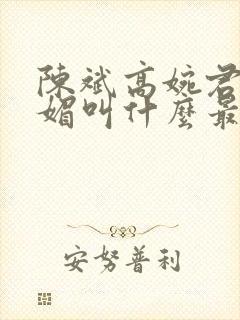 陳斌高婉君
媚叫什麼最
安努普利